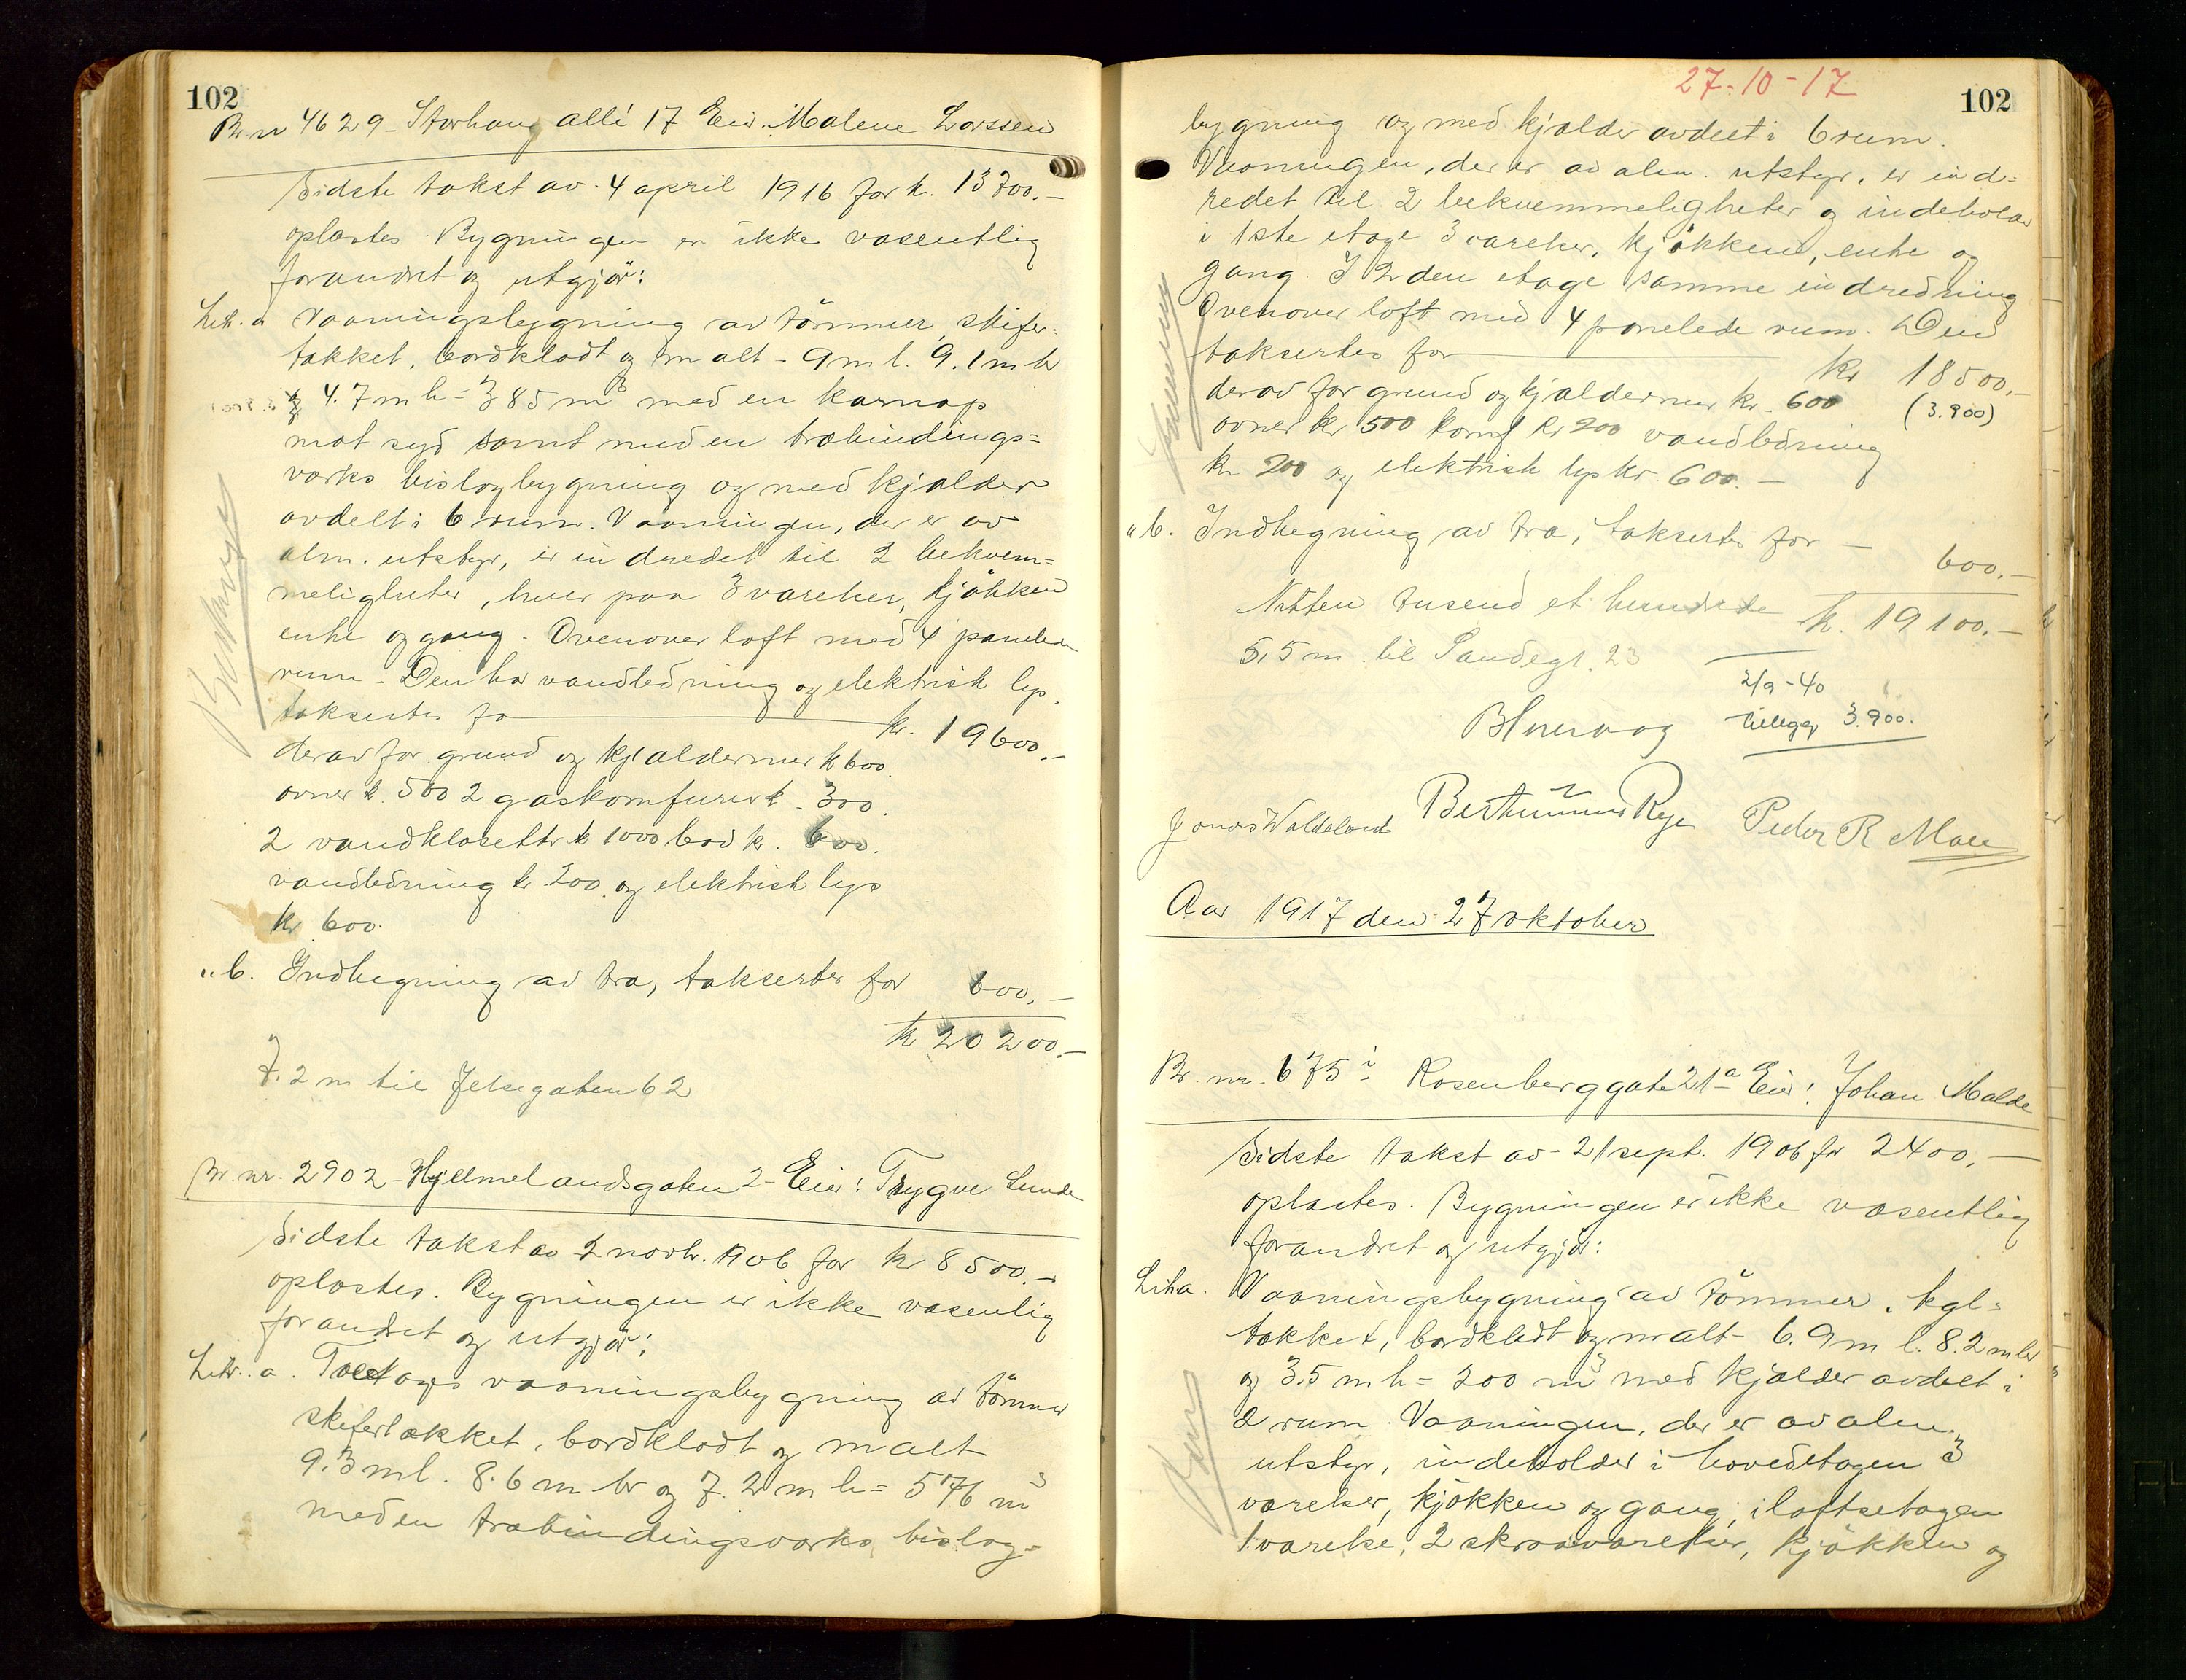 102
Br. nr 4629 - Storhaug allé 17 Eier: Malene Larssen
Sidste takst av 4 april 1916 for k. 13700.-
oplæstes. Bygningen er ikke væsentlig
forandret og utgjør:
Litr. a Vaaningsbygning av tømmer, skifer-
tækket, bordklædt og malt - 9 m l. 9.1 m br
og 4.7 m h = 385 m³ med en karnap
mot syd samt med en træbindings=
værks bislagbygning og med kjælder
avdelt i 6 rum. Vaaningen, der er av
alm. utstyr, er indredet til 2 bekvem=
meligheter, hver paa 3 værelser, kjøkken
entre og gang. Ovenover loft med 4 panelede
rum. Den har vandledning og elektrisk lys.
takseres fo kr. 19600.-
derav for grund og kjældermur k 600.
ovner k. 500 2 gaskomfurer k. 300.
2 vandklosetter k 1000 bad k. 600.
vandledning k 200 og elektrisk lys
kr 600.
" b. Indhegning av træ, takseres for 600.-
kr 20200.-
7.2 m til Jelsegaten 62
Br. nr. 2902 - Hjelmelandsgaten 2 - Eier: Trygve Lunde
Sidste takst av 2 novbr. 1906 for kr 8500.-
oplæstes. Bygningen er ikke væsenlig
forandret og utgjør:
Litr. a. Toetages vaaningsbygning av tømmer
skifertækket, bordklædt og malt
9.3 m l. 8.6 m br og 7.2 m h = 576 m³
med en træbindingsværks bislag-
27-10-17
102
bygning og med kjælder avdelt i 6 rum.
Vaaningen, der er av alm. utstyr, er ind=
redet til 2 bekvemmeligheter og indeholder
i 1ste etage 3 værelser, kjøkken, entre og
gang. I 2den etage samme indredning
Ovenover loft med 4 panelede rum. Den
takseres for kr 18500.-
derav for grund og kjældermur kr. 600 (3.900)
ovner kr 500 komf kr 200 vandledning
kr 200 og elektrisk lys kr. 600.-
" b. Indhegning av træ, takseres for - 600.-
Nitten tusend et hundrede k. 19100.-
5,5 m til Sandegt. 23
2/9-40
tillegg 3.900.
Jonas Waldeland Berthinius Rege Peder R Male
Aar 1917 den 27 oktober
Br. nr. 675 i Rosenberggate 21 a Eier: Johan Malde
Sidste takst av 21 sept. 1906 for 2400.-
oplæstes. Bygningen er ikke væsentlig
forandret og utgjør:
Litr a. Vaaningsbygning av tømmer, tegl=
tækket, bordklædt og malt - 6.9 m l. 8.2 m br
og 3.5 m h = 200 m³ med kjælder avdelt i
2 rum. Vaaningen, der er av alm.
utstyr, indeholder i hovedetagen 3
værelser, kjøkken og gang, i loftsetagen
1 værelse, 2 skraaværelser, kjøkken og